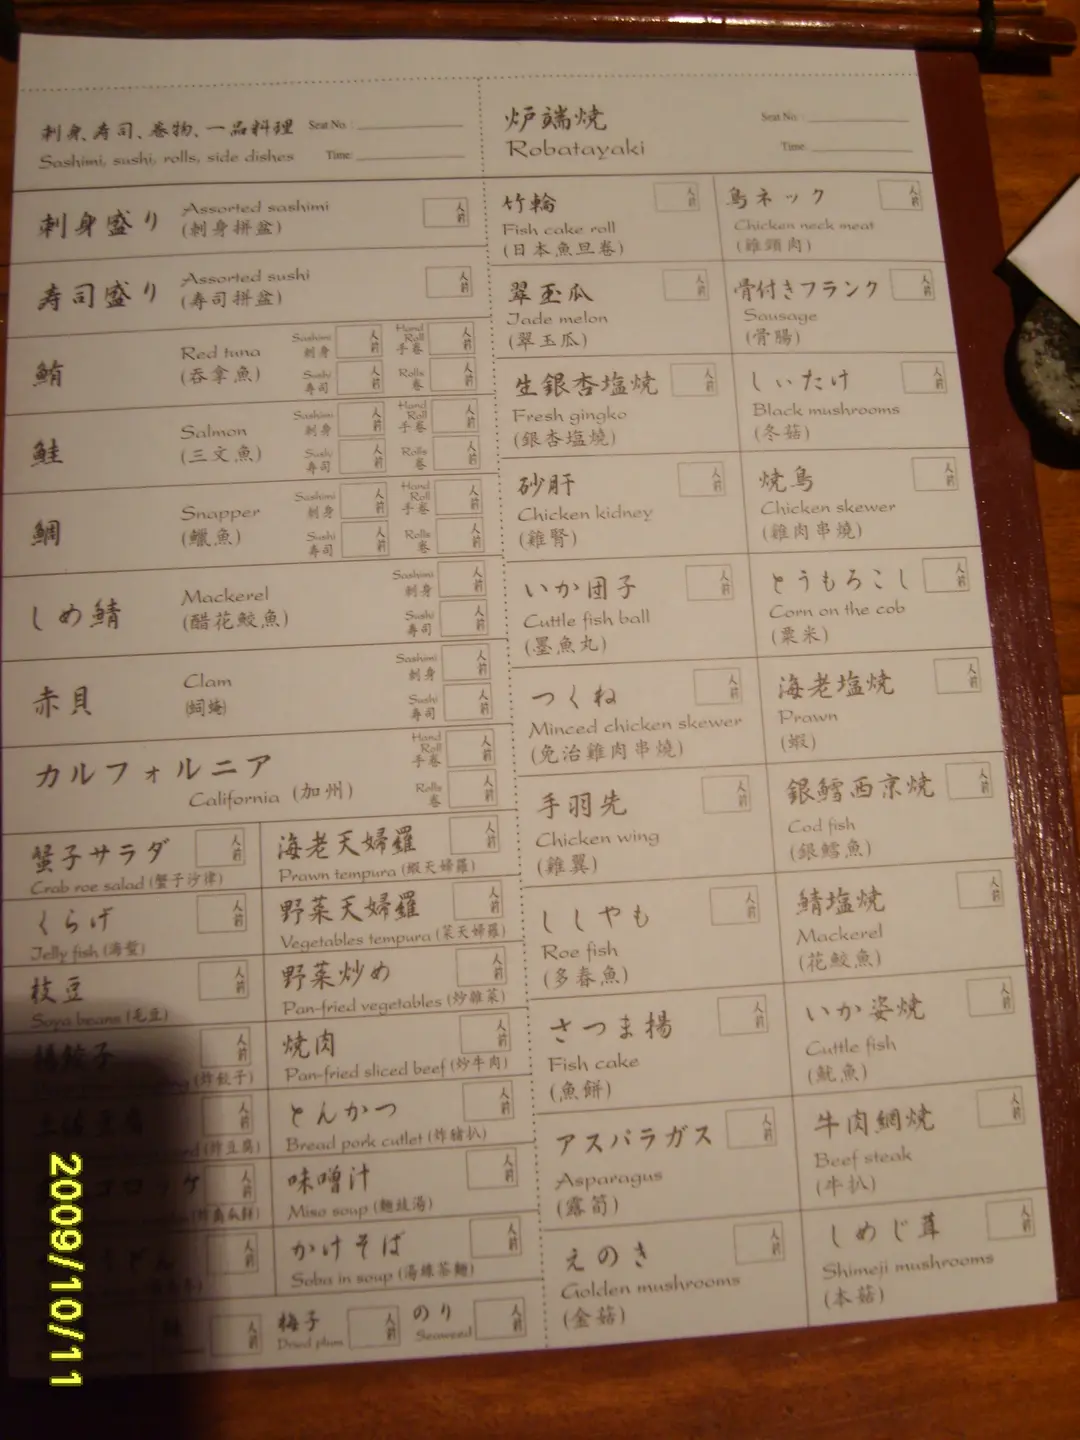 刺身、寿司、巻物、一品料理 Seat No.
Sashimi, sushi, rolls, side dishes Time
刺身盛り Assorted sashimi 人前
(刺身拼盆)
寿司盛り Assorted sushi 人前
(寿司拼盆)
鮪 Red tuna Sashimi 刺身 人前 Hand Roll 手巻 人前
(吞拿魚) Sushi 寿司 人前 Rolls 巻 人前
鮭 Salmon Sashimi 刺身 人前 Hand Roll 手巻 人前
(三文魚) Sushi 寿司 人前 Rolls 巻 人前
鯛 Snapper Sashimi 刺身 人前 Hand Roll 手巻 人前
(鱲魚) Sushi 寿司 人前 Rolls 巻 人前
しめ鯖 Mackerel Sashimi 刺身 人前
(醋花鮫魚) Sushi 寿司 人前
赤貝 Clam Sashimi 刺身 人前
Sushi 寿司 人前
カルフォルニア Hand Roll 手巻 人前
California (加州) Rolls 巻 人前
蟹子サラダ 人前
Crab roe salad (蟹子沙律)
くらげ 人前
Jelly fish (海蜇)
枝豆 人前
Soya beans (毛豆)
揚餃子 人前
(炸餃子)
人前
(炸豆腐)
コロッケ 人前
(炸南瓜餅)
うどん 人前
人前
海老天婦羅 人前
Prawn tempura (蝦天婦羅)
野菜天婦羅 人前
Vegetables tempura (菜天婦羅)
野菜炒め 人前
Pan-fried vegetables (炒雜菜)
焼肉 人前
Pan-fried sliced beef (炒牛肉)
とんかつ 人前
Bread pork cutlet (炸豬扒)
味噌汁 人前
Miso soup (麵豉湯)
かけそば 人前
Soba in soup (湯綠茶麵)
梅子 人前
Dried plum
のり 人前
Seaweed
炉端焼 Seat No.
Robatayaki Time
竹輪 人前
Fish cake roll
(日本魚旦卷)
翠玉瓜 人前
Jade melon
(翠玉瓜)
生銀杏塩焼 人前
Fresh gingko
(銀杏塩燒)
砂肝 人前
Chicken kidney
(雞腎)
いか団子 人前
Cuttle fish ball
(墨魚丸)
つくね 人前
Minced chicken skewer
(免治雞肉串燒)
手羽先 人前
Chicken wing
(雞翼)
ししやも 人前
Roe fish
(多春魚)
さつま揚 人前
Fish cake
(魚餅)
アスパラガス 人前
Asparagus
(露筍)
えのき 人前
Golden mushrooms
(金菇)
鳥ネック 人前
Chicken neck meat
(雞頸肉)
骨付きフランク 人前
Sausage
(骨腸)
しいたけ 人前
Black mushrooms
(冬菇)
焼鳥 人前
Chicken skewer
(雞肉串燒)
とうもろこし 人前
Corn on the cob
(粟米)
海老塩焼 人前
Prawn
(蝦)
銀鱈西京焼 人前
Cod fish
(銀鱈魚)
鯖塩焼 人前
Mackerel
(花鮫魚)
いか姿焼 人前
Cuttle fish
(魷魚)
牛肉網焼 人前
Beef steak
(牛扒)
しめじ茸 人前
Shimeji mushrooms
(本菇)
2009/10/11